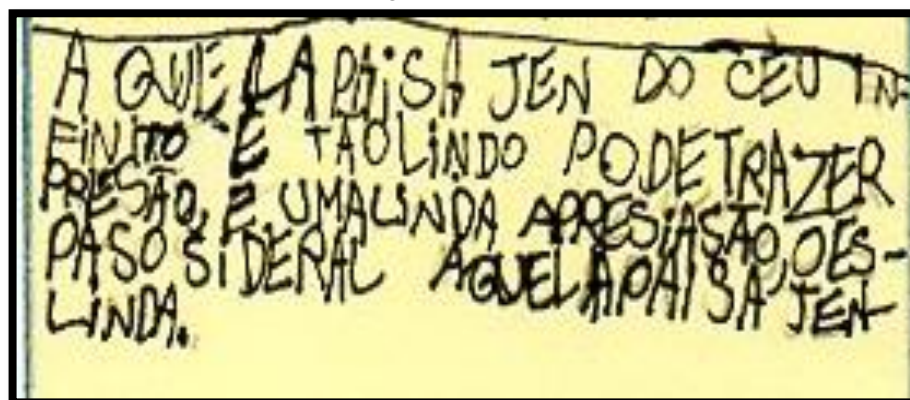 A QUELA PAISA JEN DO CEU IN-
FINITO E TÃO LINDO PODE TRAZER
PRESÃO, E UMA LINDA APRESIASÃO, O ES-
PASO SIDERAL AQUELA PAISA JEN
LINDA.